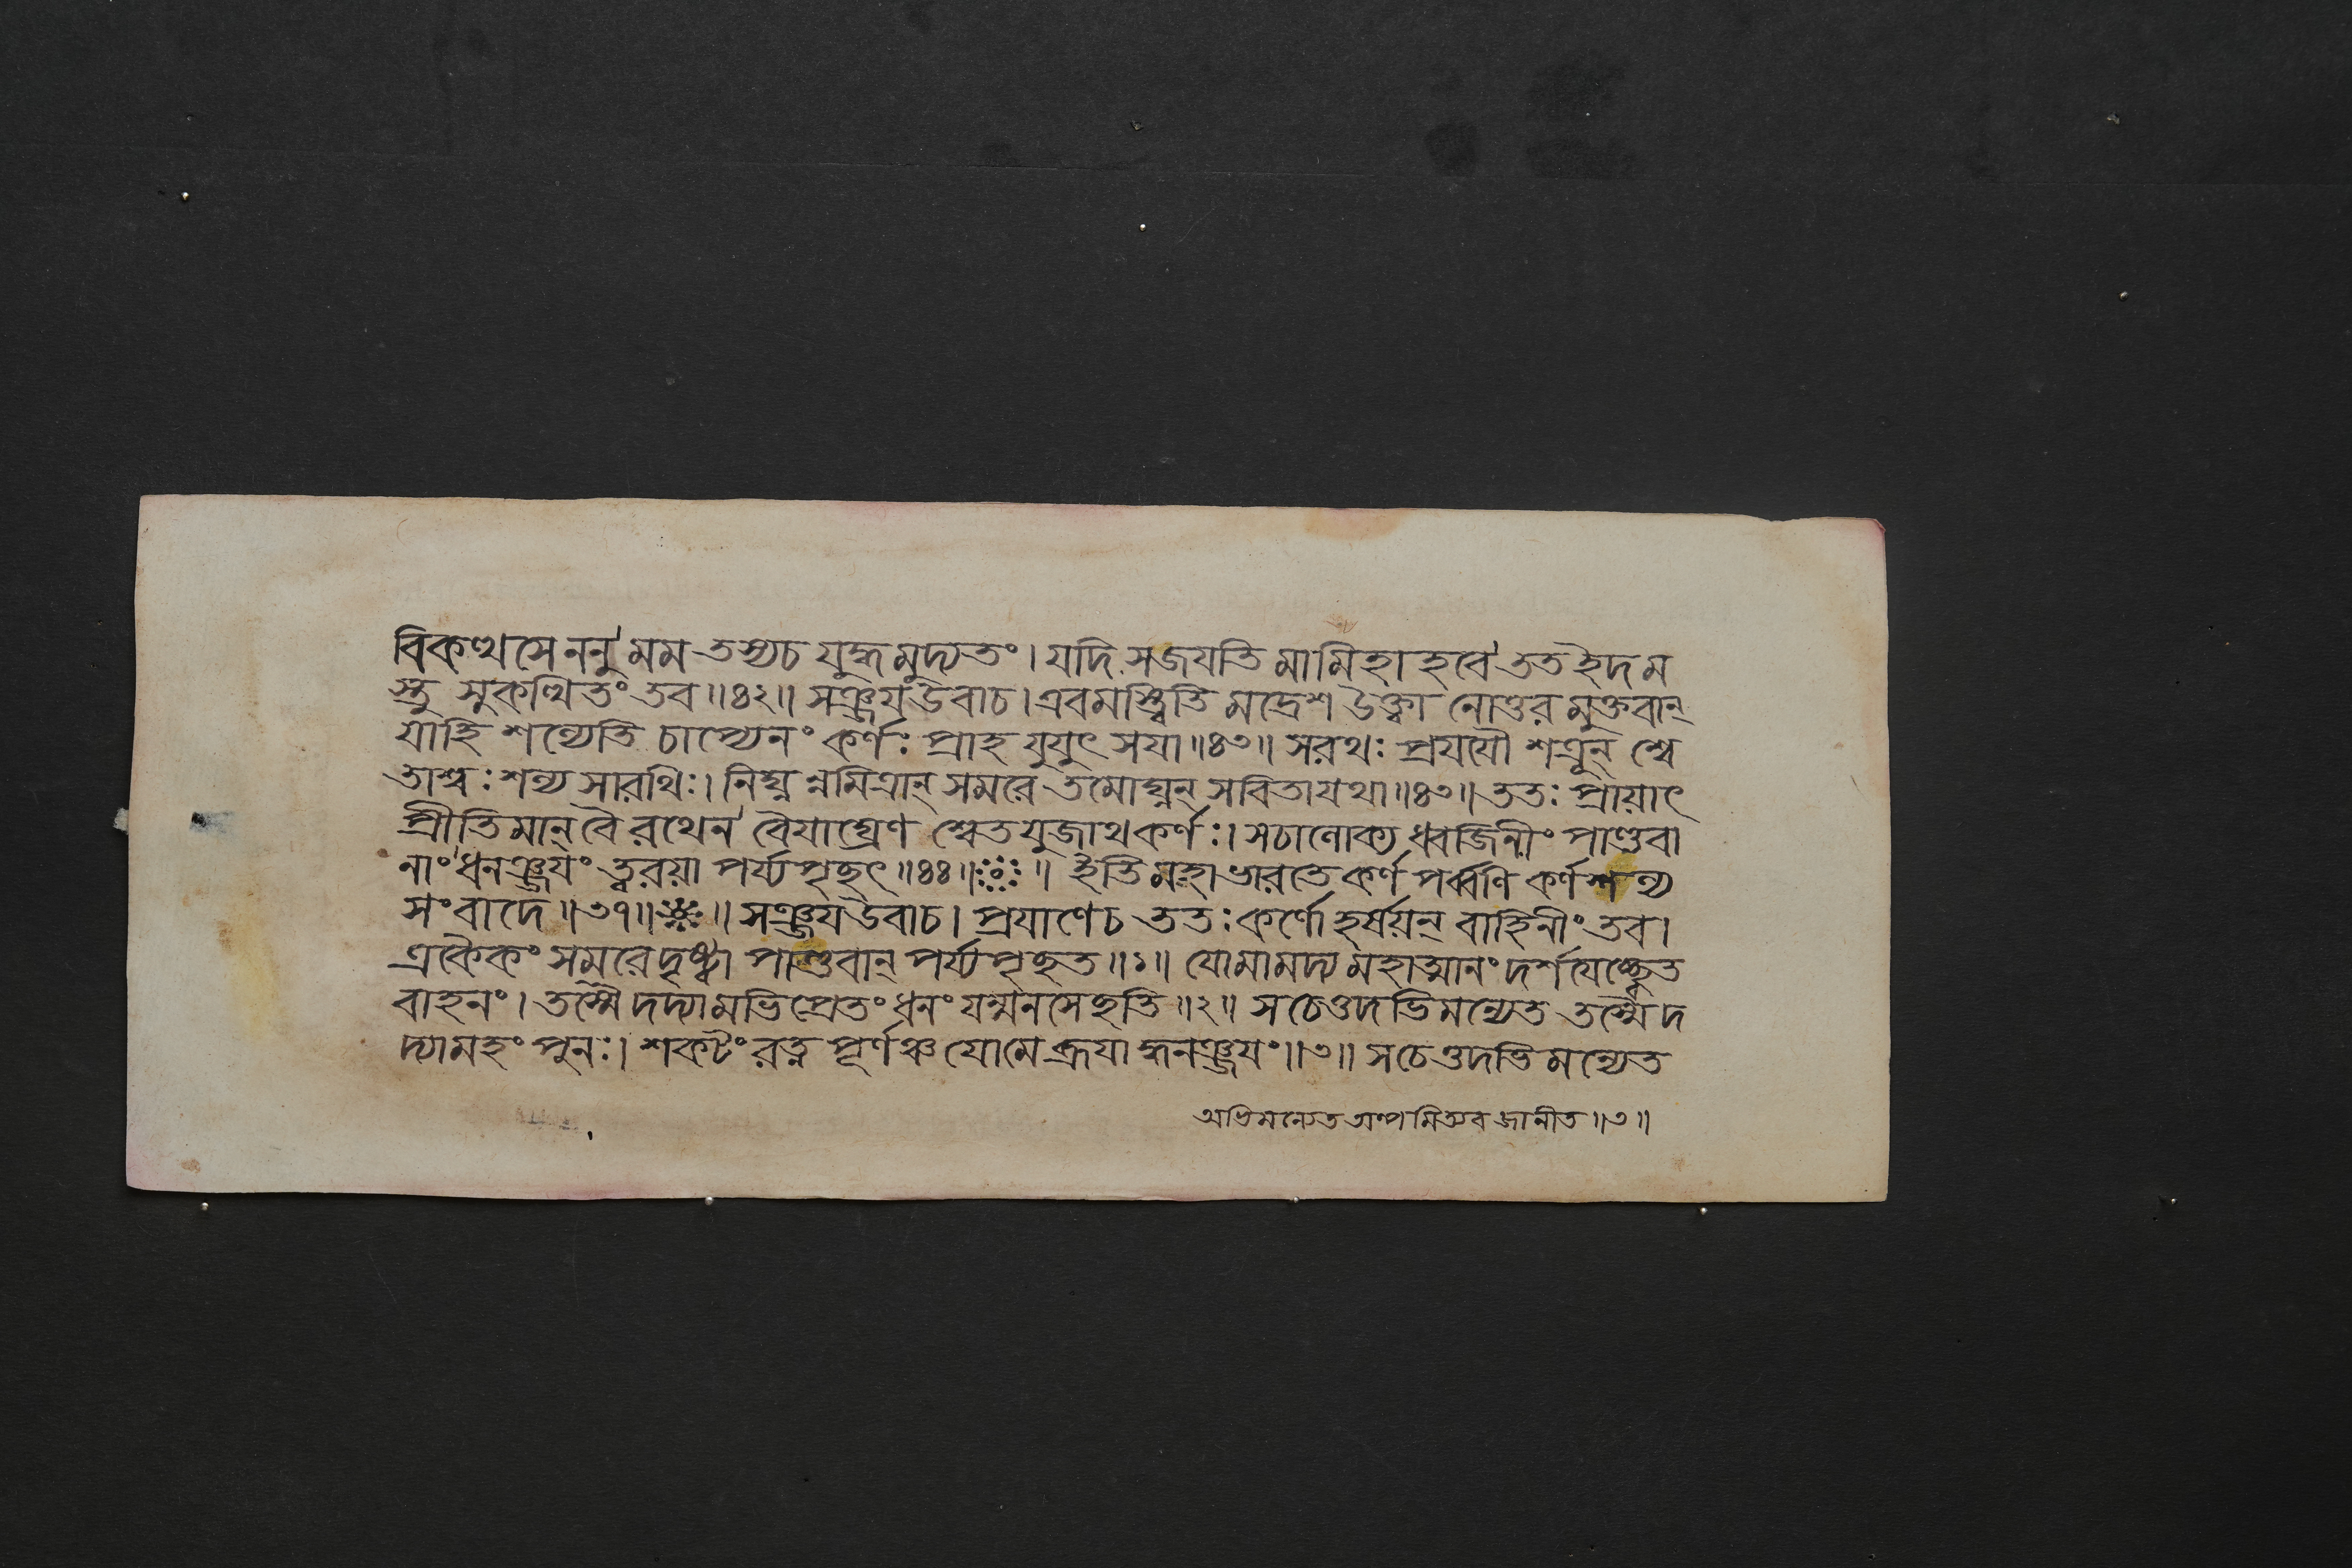 বিকত্থসে ননু মম তস্যচ যুদ্ধমুদ্যতং। যদি সজযতি মামিহাহবে ততইদম
স্তু সুকত্থিতং তব॥৪২॥ সঞ্জযউবাচ। এবমস্ত্বিতি মদ্রেশ উক্ত্বা নোত্তর মুক্তবান্
যাহি শল্যেতি চাপ্যেনং কর্ণঃ প্রাহ যুযুৎসযা॥৪৩॥ সরথঃ প্রযযৌ শত্রূন্ শ্বে
তাশ্বঃ শল্য সারথিঃ। নিঘ্নন্নমিত্রান্ সমরে তমোঘ্নন্ সবিতা যথা॥৪৩॥ ততঃ প্রায়াৎ
প্রীতিমান্ বৈ রথেন বৈযাঘ্রেণ শ্বেতযুজাথ কর্ণঃ। সচালোক্য ধ্বজিনীং পাণ্ডবা
নাং ধনঞ্জযং ত্বরয়া পর্য্যপৃছৎ॥৪৪॥ ॥ ইতি মহাভারতে কর্ণ পর্ব্বণি কর্ণ শল্য
সংবাদে॥৩৭॥ ॥ সঞ্জযউবাচ। প্রযাণেচ ততঃ কর্ণো হর্ষয়ন্ বাহিনীং তব।
একৈকং সমরে দৃষ্ট্বা পাণ্ডবান্ পর্য্যপৃছত॥১॥ যোমামদ্য মহাত্মানং দর্শযেচ্ছ্বেত
বাহনং। তস্মৈ দদ্যামভিপ্রেতং ধনং যন্মনসেছতি॥২॥ সচেত্তদভিমন্যেত তস্মৈ দ
দ্যামহং পুনঃ। শকটং রত্ন পূর্ণঞ্চ যোমে ব্রূযাদ্ধনঞ্জযং॥৩॥ সচেত্তদভিমন্যেত
অভিমন্যেত অল্পমিত্যব জানীত॥৩॥